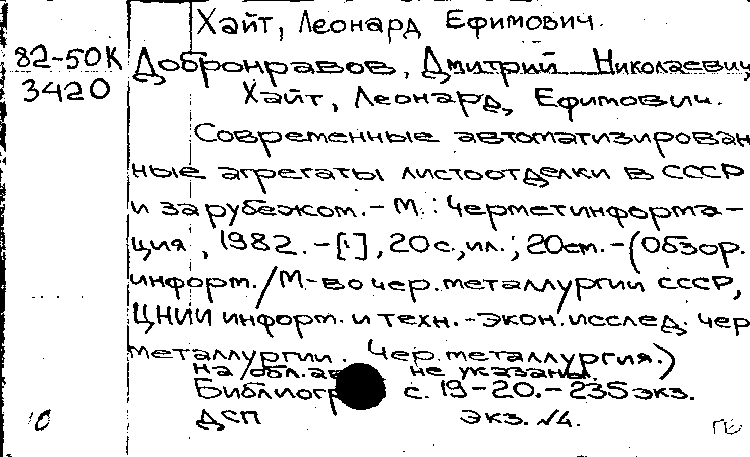 Хайт, Леонард Ефимович.
82-50К Добронравов, Дмитрий Николаевич
3420 Хайт, Леонард Ефимович.
Современные автоматизирован
ные агрегаты листоотделки в СССР
и за рубежом. - М. : Черметинформа-
ция, 1982. - [1], 20 с., ил.; 20 см. - (Обзор.
информ. / М-во чер. металлургии СССР,
ЦНИИ информ. и техн.-экон. исслед. чер
металлургии. Чер. металлургия.)
на обл. не указаны.
с. 19-20. - 235 экз.
ДСП экз. №4.